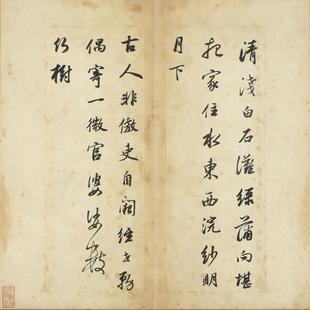 清淺白石灘綠蒲向堪
把家住水東西浣紗明
月下
古人非傲吏自闕經世務
偶寄一微官婆娑數
行樹